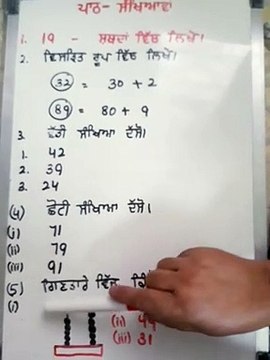 ਪਾਠ- ਸੰਖਿਆਵਾਂ
1. 19 - ਸ਼ਬਦਾਂ ਵਿੱਚ ਲਿਖੋ।
2. ਵਿਸਤ੍ਰਿਤ ਰੂਪ ਵਿੱਚ ਲਿਖੋ।
32 = 30 + 2
89 = 80 + 9
3. ਛੋਟੀ ਸੰਖਿਆ ਦੱਸੋ।
1. 42
2. 39
3. 24
(4) ਛੋਟੀ ਸੰਖਿਆ ਦੱਸੋ।
(i) 71
(ii) 79
(iii) 91
(5) ਗਿਣਤਾਰੇ ਵਿੱਚ
(i)
(ii) 44
(iii) 31